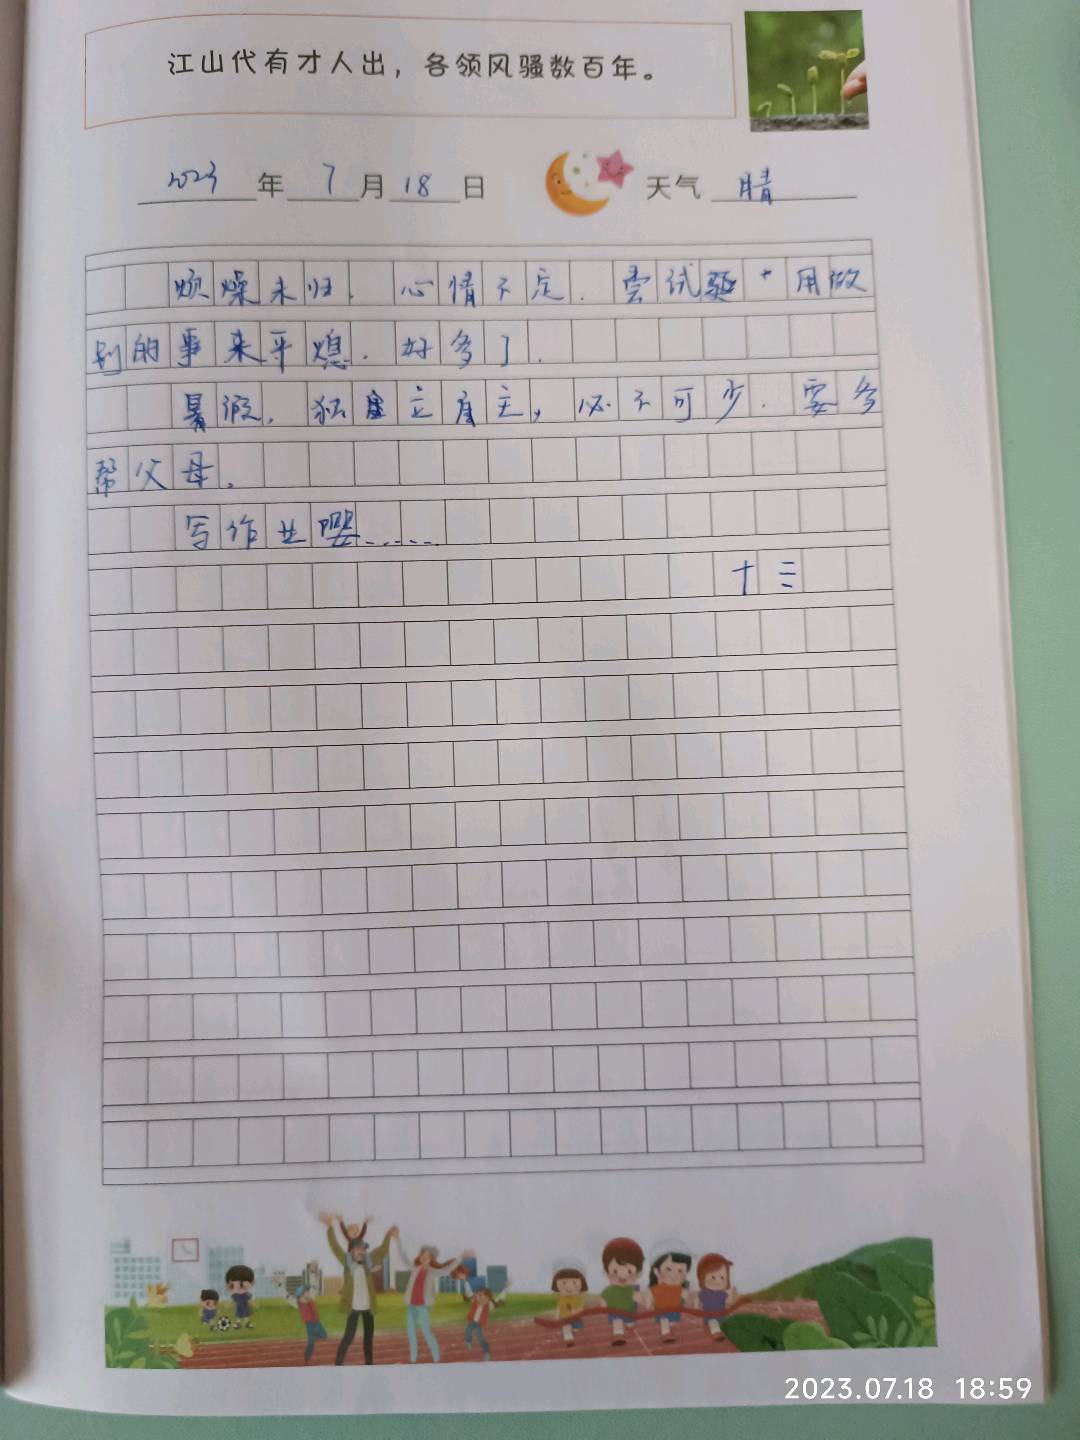 江山代有才人出，各领风骚数百年。
2023年7月18日 天气 晴
烦燥未归. 心情不定. 尝试验 用做
别的事来平熄. 好多了.
暑假, 独立自主, 必不可少. 要多
帮父母.
写作业嘤......
十三
2023.07.18 18:59